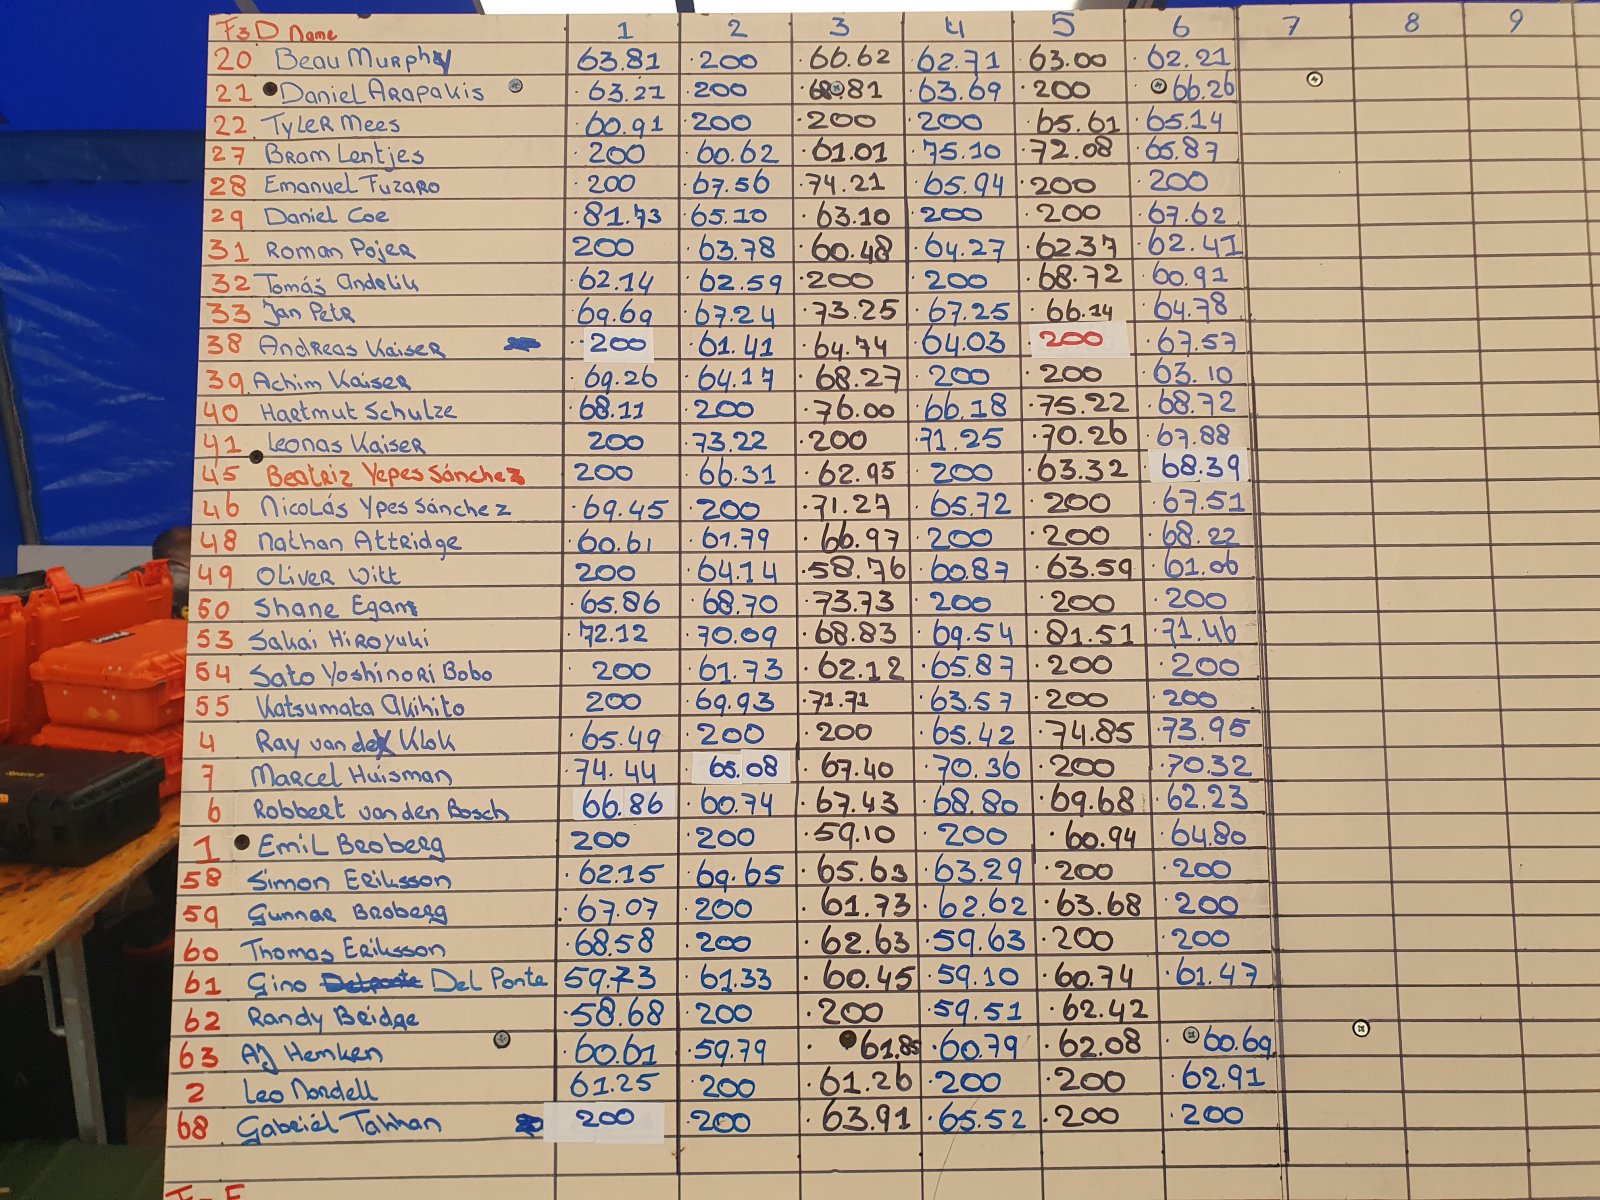 F3D Name 1 2 3 4 5 6 7 8 9
20 Beau Murphy 63.81 200 66.62 62.71 63.00 62.21
21 Daniel Arapakis 63.21 200 68.81 63.69 200 66.26
22 Tyler Mees 60.91 200 200 200 65.61 65.14
27 Bram Lentjes 200 60.62 61.01 75.10 72.08 65.87
28 Emanuel Fuzaro 200 67.56 74.21 65.94 200 200
29 Daniel Coe 81.73 65.10 63.10 200 200 67.62
31 Roman Pojer 200 63.78 60.48 64.27 62.37 62.41
32 Tomáš Andelik 62.14 62.59 200 200 68.72 60.91
33 Jan Petr 69.69 67.24 73.25 67.25 66.14 64.78
38 Andreas Kaiser 200 61.41 64.74 64.03 200 67.57
39 Achim Kaiser 69.26 64.17 68.27 200 200 63.10
40 Hartmut Schulze 68.11 200 76.00 66.18 75.22 68.72
41 Leonas Kaiser 200 73.22 200 71.25 70.26 67.88
45 Beatriz Yepes Sánchez 200 66.31 62.95 200 63.32 68.39
46 Nicolás Ypes Sánchez 69.45 200 71.27 65.72 200 67.51
48 Nathan Attridge 60.61 61.79 66.97 200 200 68.22
49 Oliver Witt 200 64.14 58.76 60.87 63.59 61.06
50 Shane Egan 65.86 68.70 73.73 200 200 200
53 Sakai Hiroyuki 72.12 70.09 68.83 69.54 81.51 71.46
54 Sato Yoshinori Bobo 200 61.73 62.12 65.87 200 200
55 Katsumata Akihito 200 69.93 71.71 63.57 200 200
4 Ray van de Klok 65.49 200 200 65.42 74.85 73.95
7 Marcel Huisman 74.44 65.08 67.40 70.36 200 70.32
6 Robbert van den Bosch 66.86 60.74 67.43 68.80 69.68 62.23
1 Emil Broberg 200 200 59.10 200 60.94 64.80
58 Simon Eriksson 62.15 69.65 65.63 63.29 200 200
59 Gunnar Broberg 67.07 200 61.73 62.62 63.68 200
60 Thomas Eriksson 68.58 200 62.63 59.63 200 200
61 Gino Delponte Del Ponte 59.73 61.33 60.45 59.10 60.74 61.47
62 Randy Bridge 58.68 200 200 59.51 62.42
63 AJ Hemken 60.61 59.79 61.85 60.79 62.08 60.69
2 Leo Nordell 61.25 200 61.26 200 200 62.91
68 Gabriël Talhan 200 200 63.91 65.52 200 200